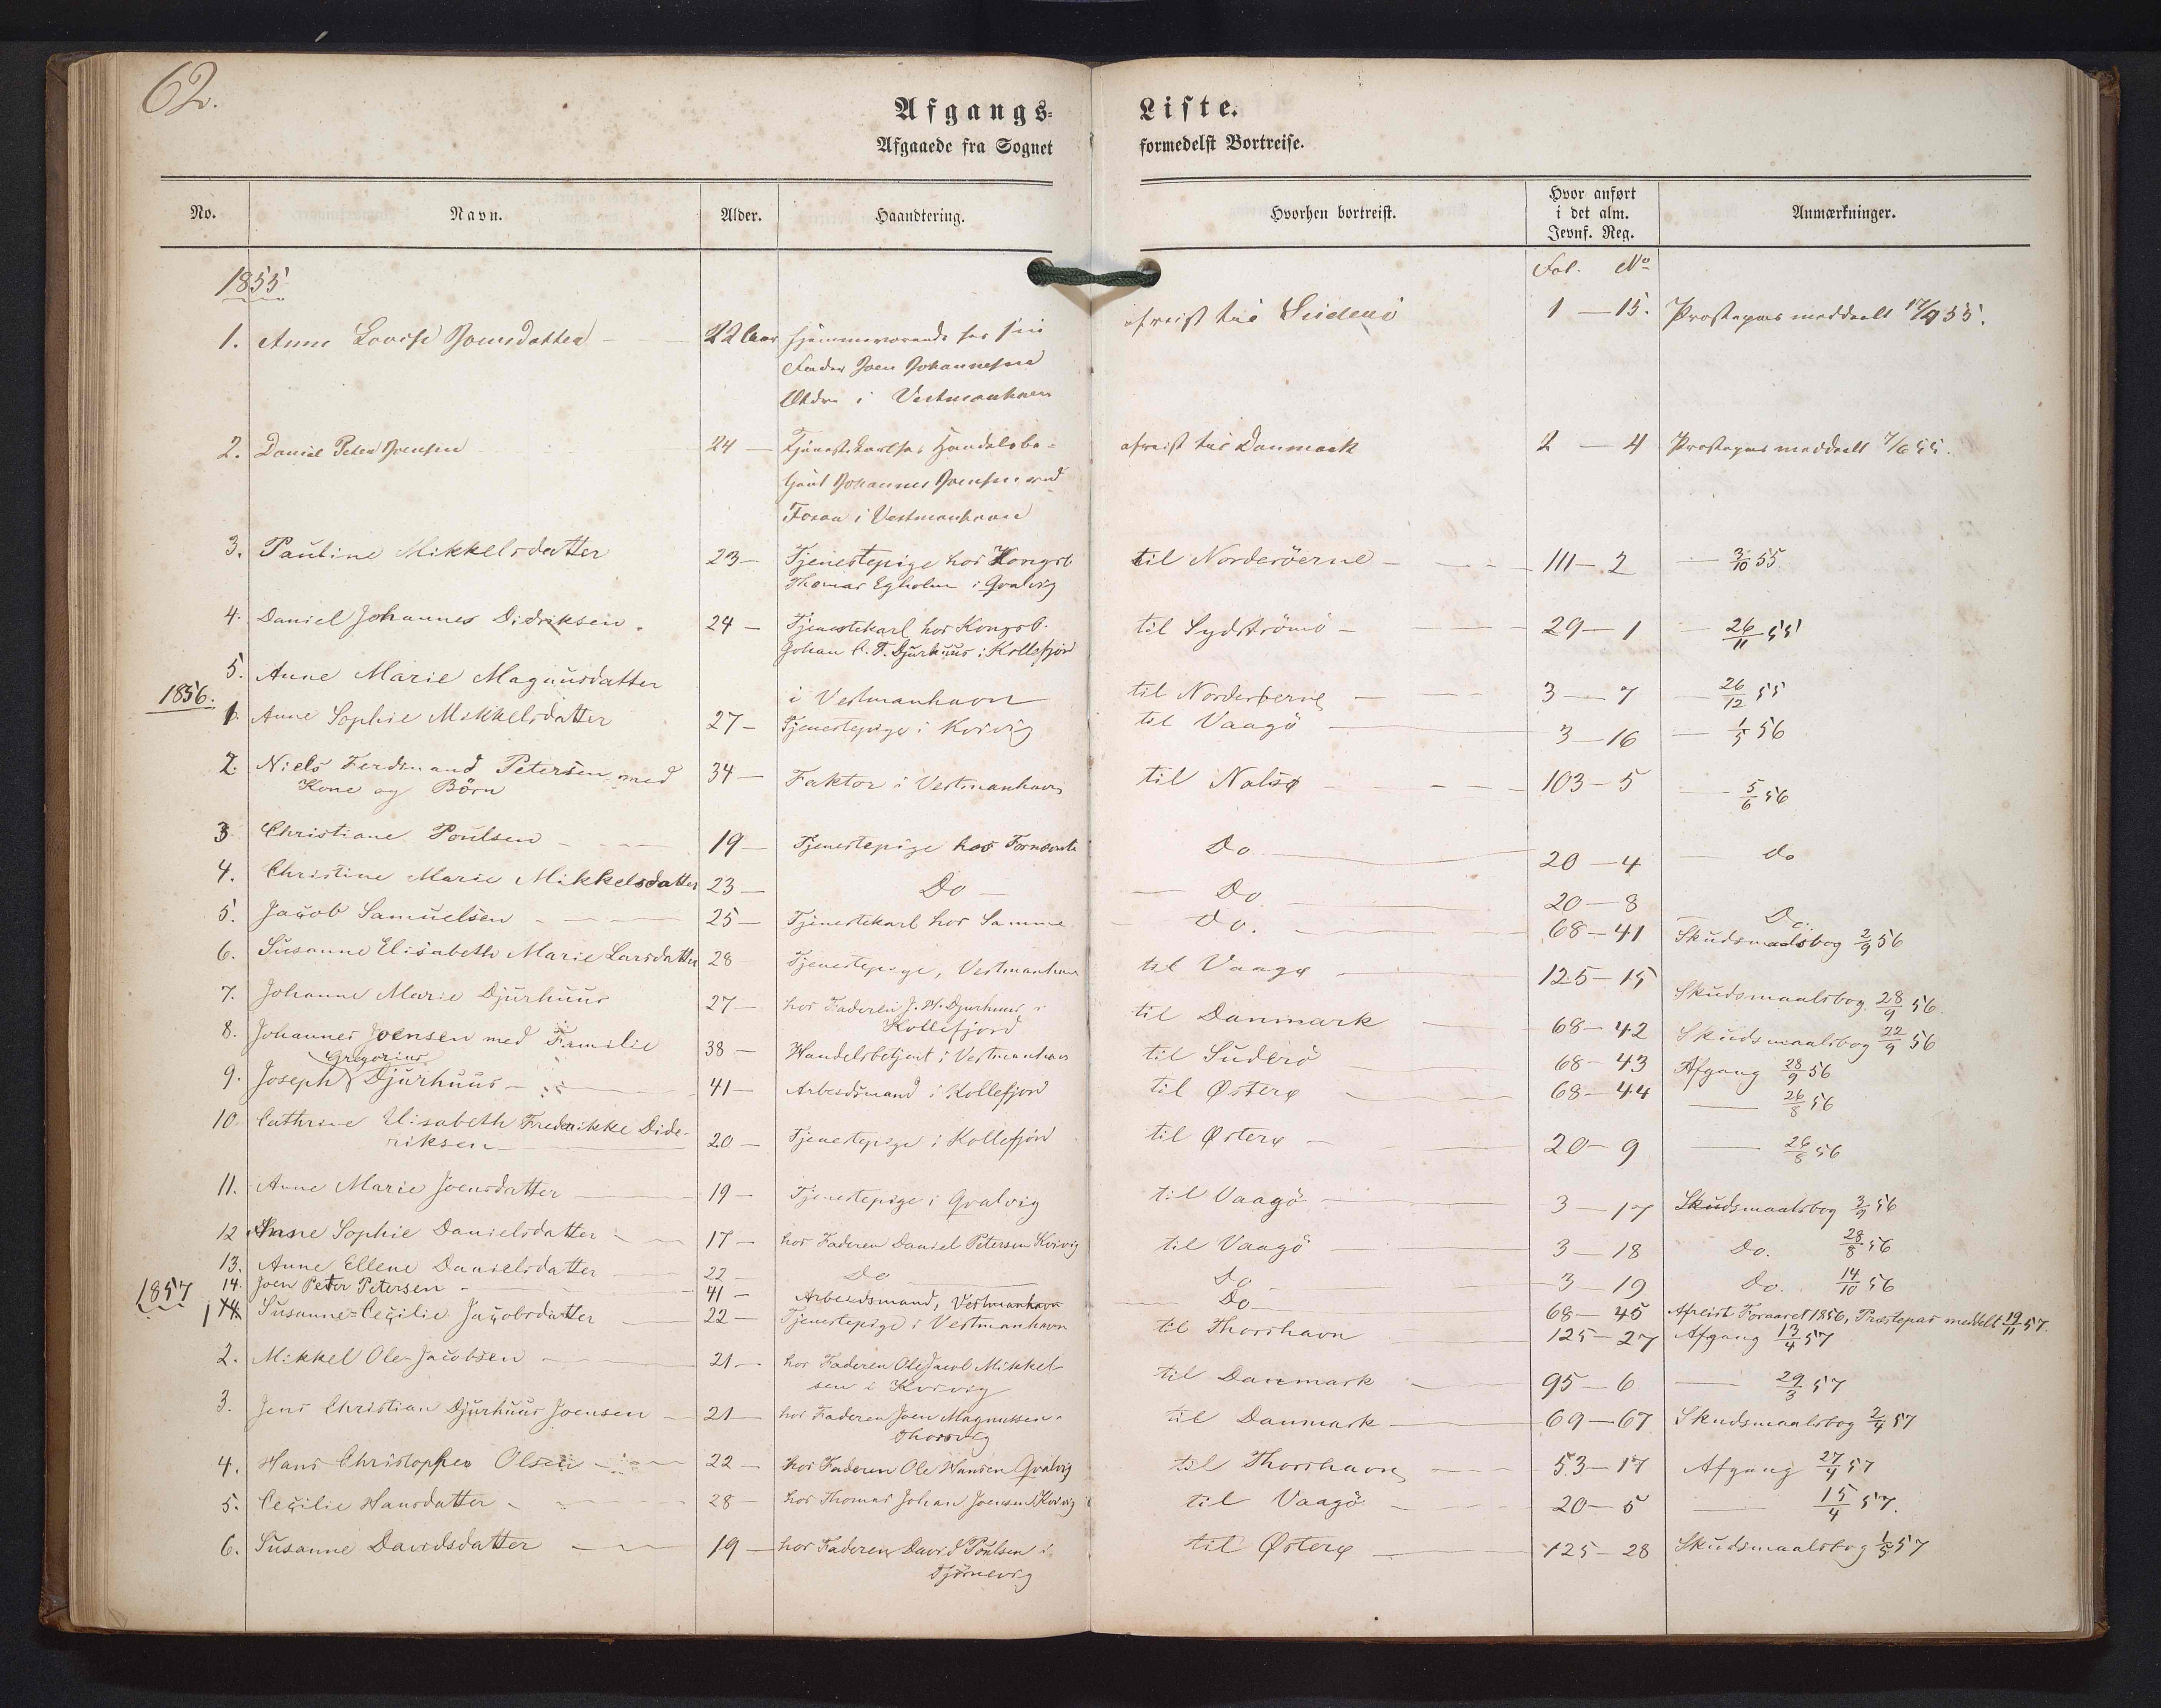 62.
Afgangs-Liste.
Afgaaede fra Sognet formedelst Bortreise.
No. Navn. Alder. Haandtering. Hvorhen bortreist. Hvor anført i det alm. Jevnf. Reg. Anmærkninger.
Fol. No
1855
1. Anne Lovise Joensdatter 22 Aar hjemmeværende hos sin afreist til Suderö 1 — 15. Præstepas meddeelt 17/9 55.
Fader Joen Johannesen
i Vestmanhavn
2. Daniel Peter Joensen 24 — Tjenestekarl hos Handelsbe- afreist til Danmark 2 — 4 Præstepas meddeelt 7/6 55.
tjent Johannes Joensen ved
Fossaa i Vestmanhavn
3. Pauline Mikkelsdatter 23 — Tjenestepige hos Kongsb. til Norderöerne 111 — 2 — 3/10 55.
Thomas Egholm i Qvalvig
4. Daniel Johannes Didriksen. 24 — Tjenestekarl hos Kongsb. til Sydströmö — 29 — 1 — 26/11 55
Johan C. T. Djurhuus i Kollefjord
5. Anne Marie Magnusdatter i Vestmanhavn til Norderöerne 3 — 7 — 26/12 55
1856.
1. Anne Sophie Mikkelsdatter 27 — Tjenestepige i Kvivig til Vaagö 3 — 16 — 1/5 56
2. Niels Ferdinand Petersen med 34 — Faktor i Vestmanhavn til Nolsø 103 — 5 — 5/6 56
Kone og Börn
3. Christiane Poulsen 19 — Tjenestepige hos Fornævnte Do 20 — 4 — do
4. Christine Marie Mikkelsdatter 23 — Do — Do 20 — 8 Do.
5. Jacob Samuelsen 25 — Tjenestekarl hos Samme Do. 68 — 41 Skudsmaalsbog 2/9 56
6. Susanne Elisabeth Marie Larsdatter 28 Tjenestepige, Vestmanhavn til Vaagø 125 — 15 Skudsmaalsbog 28/9 56.
7. Johanne Marie Djurhuus 27 — hos Faderen J. H. Djurhuus i til Danmark 68 — 42 Skudsmaalsbog 22/9 56
Kollefjord
8. Johannes Joensen med Familie 38 — Handelsbetjent i Vestmanhavn til Suderö 68 — 43 Afgang 28/9 56
Gregorius
9. Joseph Djurhuus 41 — Arbeidsmand i Kollefjord til Østerø 68 — 44 — 26/8 56
10. Cathrine Elisabeth Frederikke Dide- 20 — Tjenestepige i Kollefjord til Østerø 20 — 9 — 26/8 56
riksen
11. Anne Marie Joensdatter 19 — Tjenestepige i Qvalvig til Vaagö 3 — 17 Skudsmaalsbog 3/9 56
12 Anne Sophie Danielsdatter 17 — hos Faderen Daniel Petersen Kvivig til Vaagö 3 — 18 Do. 28/8 56
13. Anne Ellene Danielsdatter 22 — Do Do 3 — 19 Do. 14/10 56
14. Joen Peter Petersen 41 — Arbeidsmand, Vestmanhavn Do 68 — 45 Afreist Foraaret 1856, Præstepas meddelt 19/11 57.
1857
1 Susanne Cecilie Jacobsdatter 22 — Tjenestepige i Vestmanhavn til Thorshavn 125 — 27 Afgang 13/4 57
2. Mikkel Ole Jacobsen 21 — hos Faderen Ole Jacob Mikkel- til Danmark 95 — 6 — 29/3 57
sen i Kvivig
3. Jens Christian Djurhuus Joensen — 21 — hos Faderen Joen Magnussen til Danmark 69 — 67 Skudsmaalsbog 2/4 57
Thorsvig
4. Hans Christopher Olsen 22 — hos Faderen Ole Hansen Qvalvig til Thorshavn 53 — 17 Afgang 27/4 57
5. Cecilie Hansdatter 28 — hos Thomas Johan Joensen i Kvivig til Vaagö 20 — 5 — 15/4 57.
6. Susanne Davidsdatter 19 — hos Faderen David Poulsen i til Østerø 125 — 28 Skudsmaalsbog 1/5 57
Tjörnevig